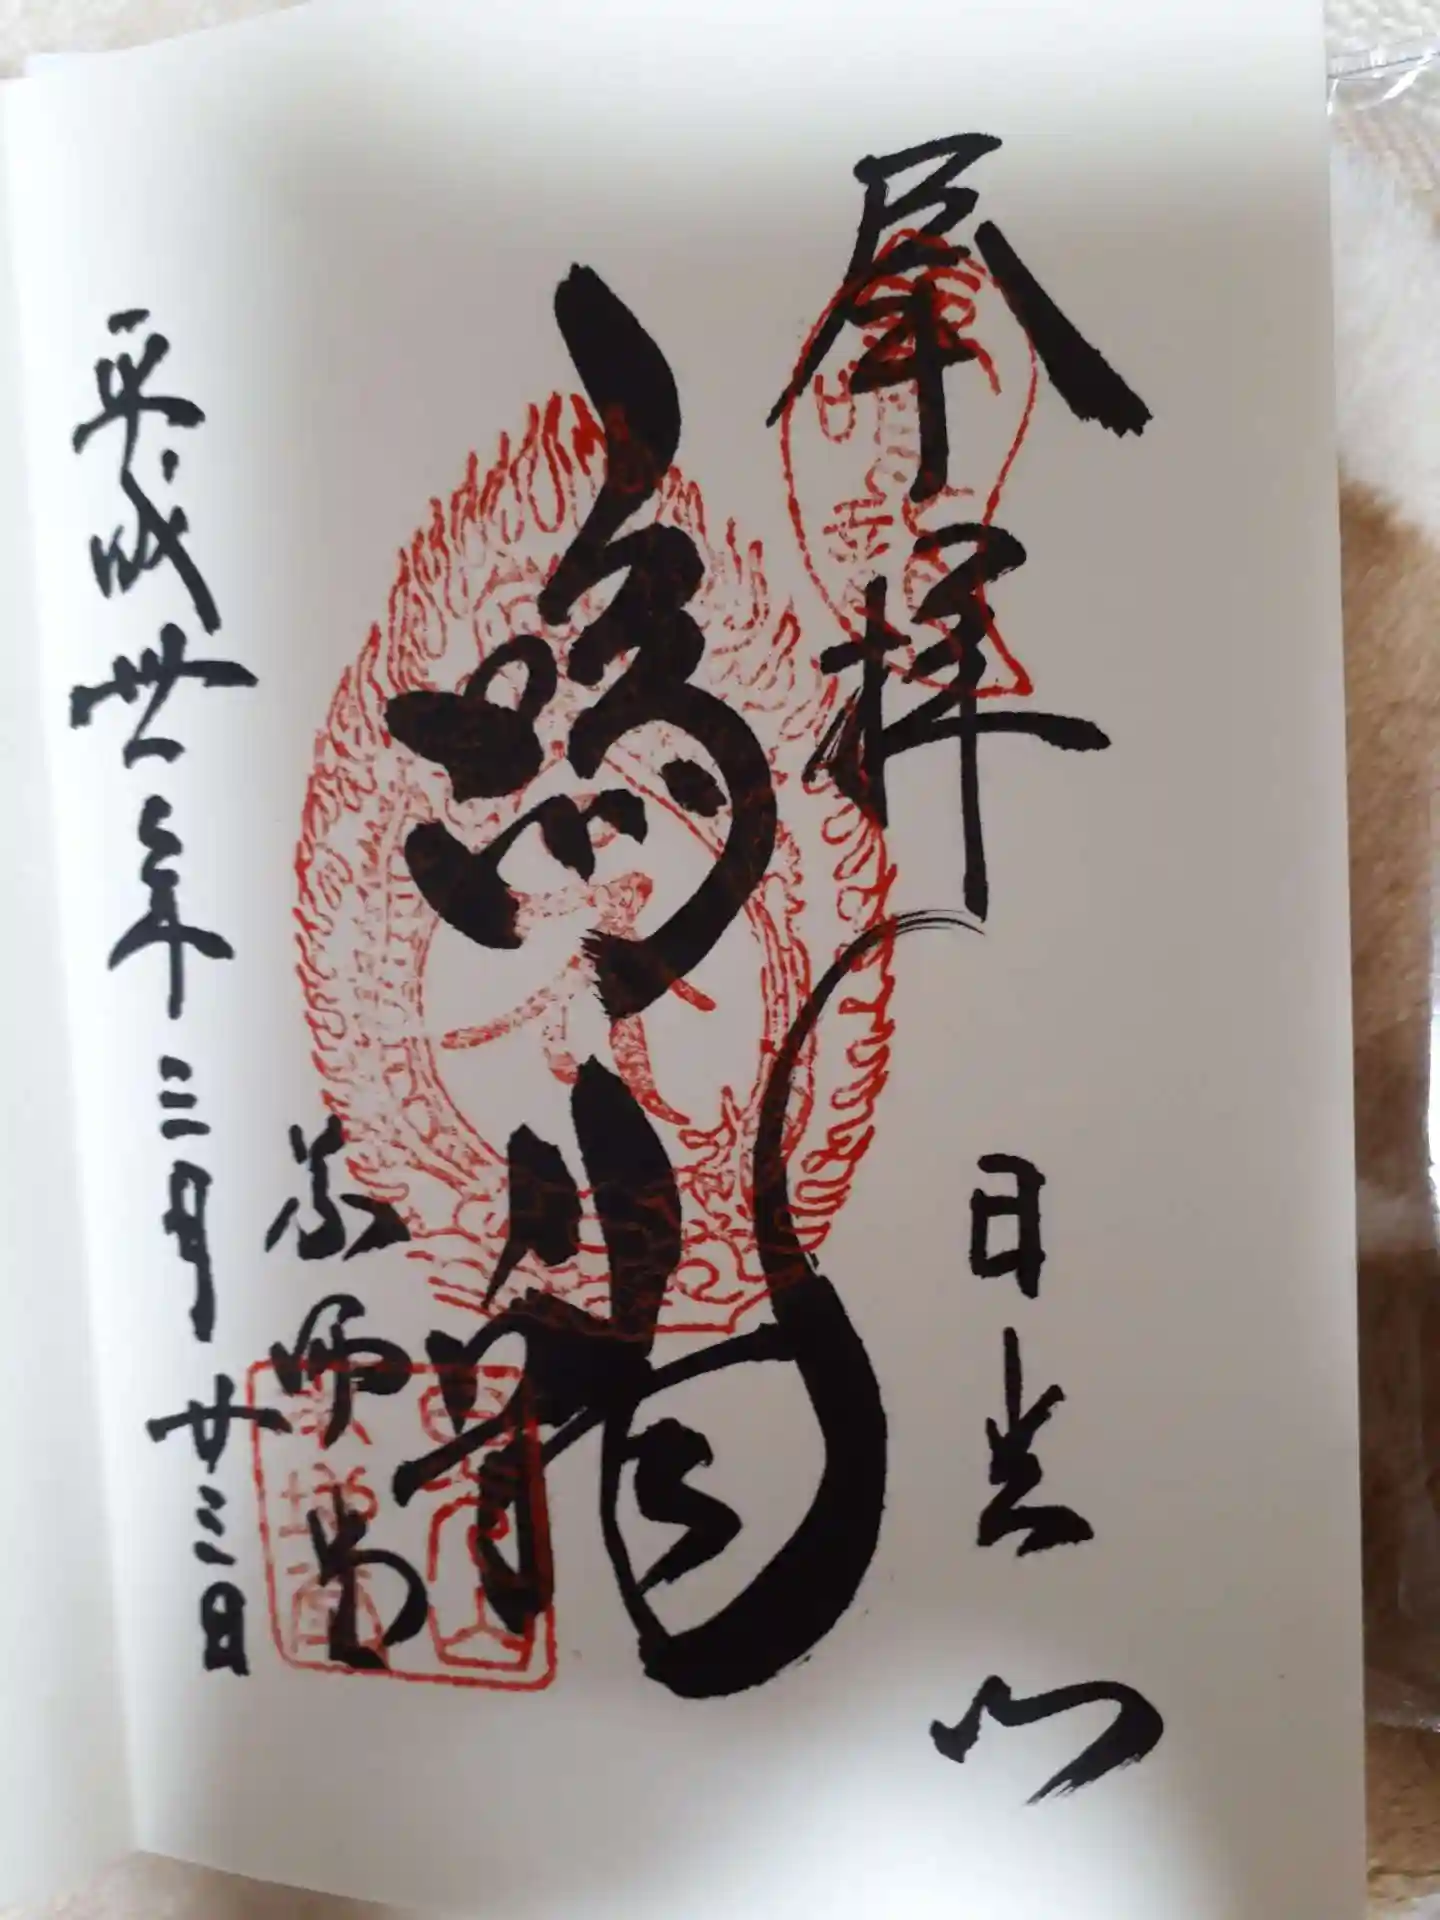 奉拝
日光山
鳴龍
薬師堂
平成卅一年三月廿三日